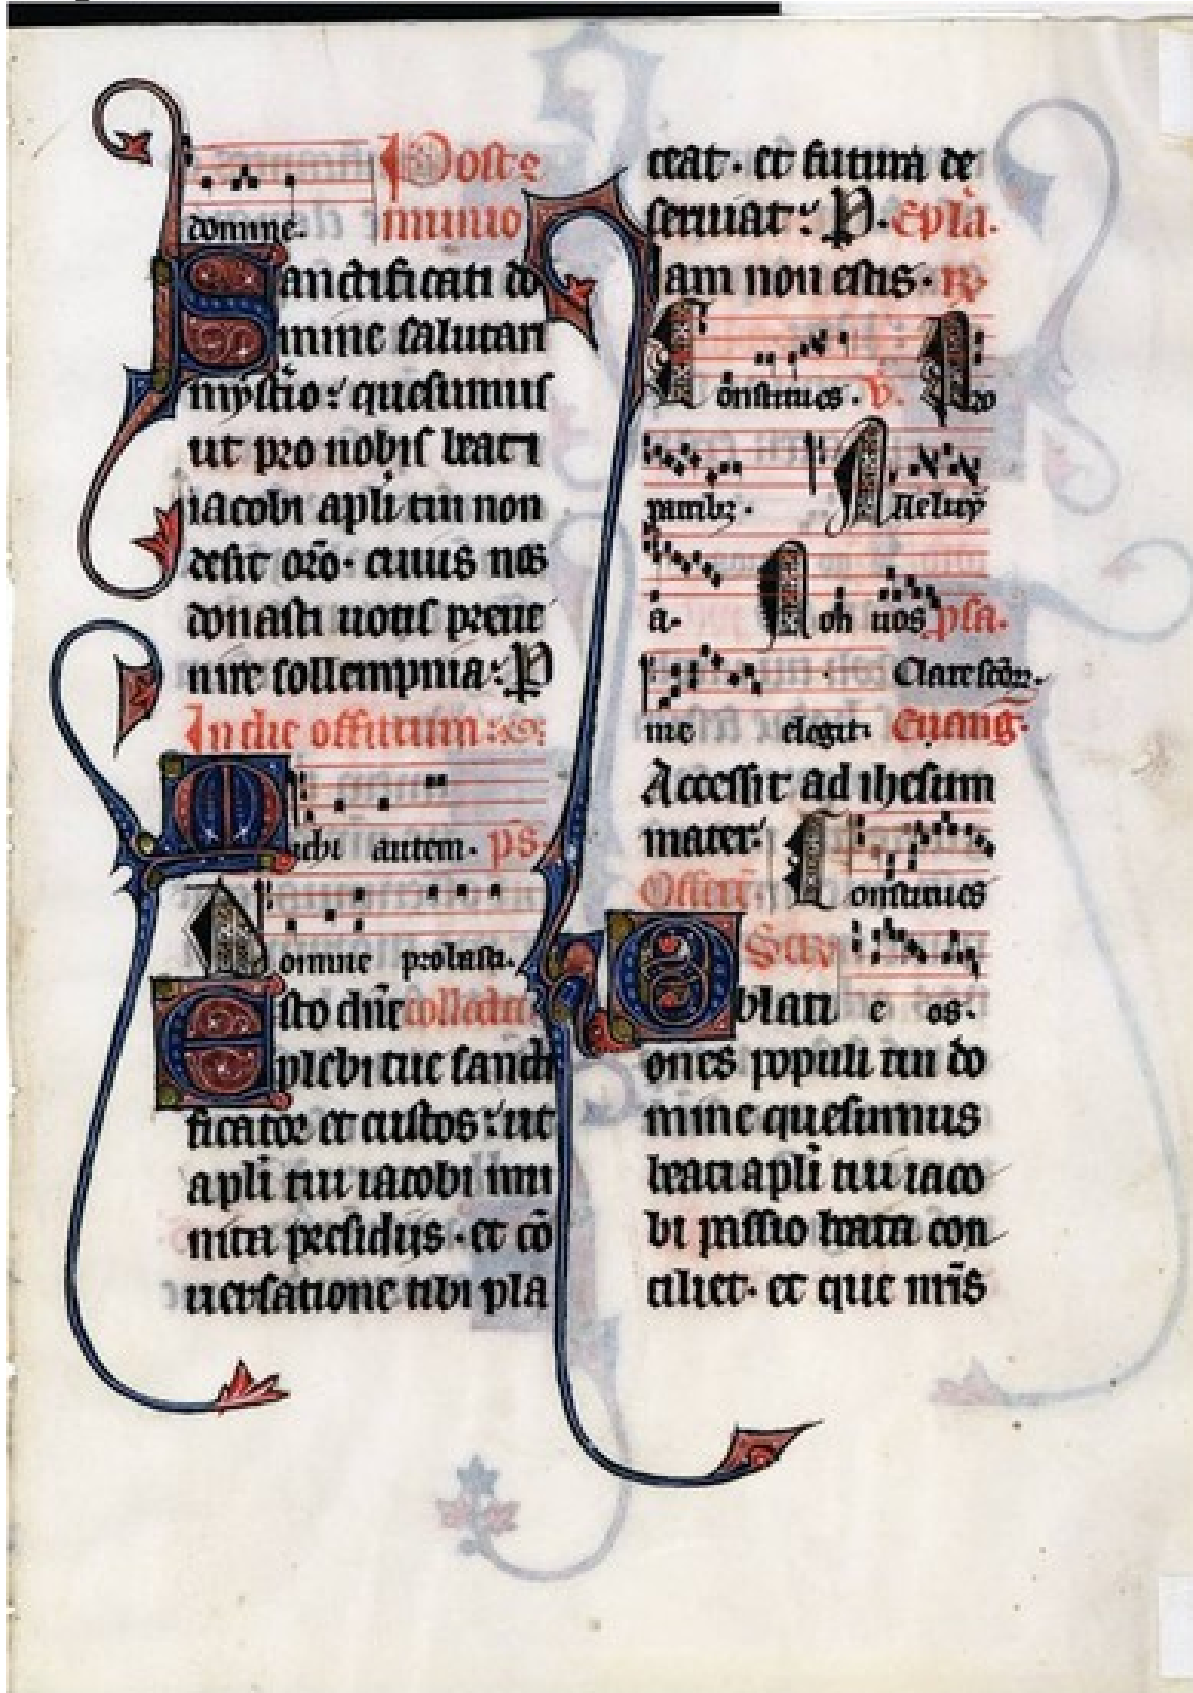 domine. Postco
munio
Sanctificati do
mine salutari
mysterio: quesumus
ut pro nobis beati
iacobi apli tui non
desit oro. cuius nos
donasti uotis preue
nire sollempnia: P
In die offitium
Michi autem. ps.
Domine probasti.
Esto dne collecta
plebi tue sancti
ficator et custos: ut
apli tui iacobi mu
nita presidiis. et co
uersatione tibi pla
ceat. et futura de
seruiat: P. Epla.
Iam non estis. R
Constitues. V. Pro
patribz.
Alleluy
a. Non uos psa.
me elegit. Euang.
Accessit ad ihesum
mater.
Offert. Constitues
eos.
Oblati
ones populi tui do
mine quesumus
beati apli tui iaco
bi passio beata con
ciliet. et que nris